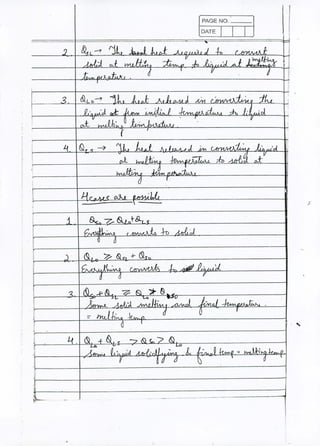 PAGE NO.
DATE
2. Q_SL → The heat required to convert
solid at melting temp to liquid at melting
temperature.
3. Q_LO → The heat released in converting the
liquid at from initial temperature to liquid
at melting temperature.
4. Q_LS → The heat released in converting liquid
at melting temperature to solid at
melting temperature
4 cases are possible
1. Q_SO ≥ Q_LO + Q_LS
Everything converts to solid.
2. Q_LO ≥ Q_SL + Q_SO
Everything converts to liquid
3.
Some solid melting and final temperature
= melting temp.
4. Q_LO + Q_LS > Q_SO > Q_LO
Some liquid solidifying & final temp. = melting temp.